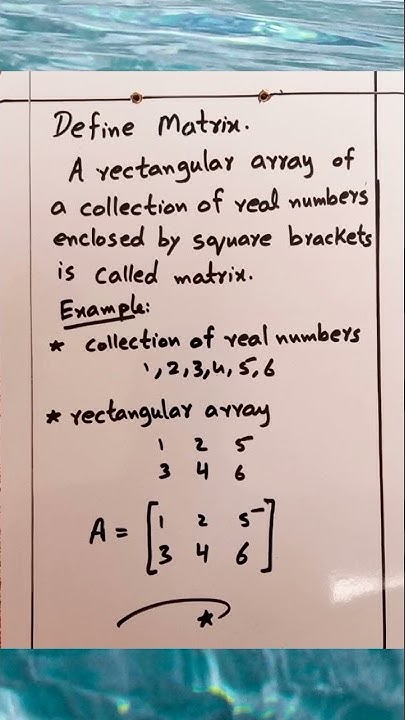 Define Matrix.
A rectangular array of
a collection of real numbers
enclosed by square brackets
is called matrix.
Example:
* collection of real numbers
1,2,3,4,5,6
* rectangular array
1 2 5
3 4 6
A = [1 2 5
3 4 6]